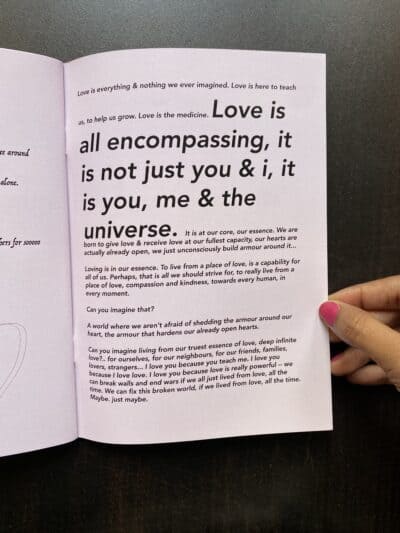 re around
alone.
for sooooo
Love is everything & nothing we ever imagined. Love is here to teach
us, to help us grow. Love is the medicine. Love is
all encompassing, it
is not just you & i, it
is you, me & the
universe. It is at our core, our essence. We are
born to give love & receive love at our fullest capacity, our hearts are
actually already open, we just unconsciously build armour around it...
Loving is in our essence. To live from a place of love, is a capability for
all of us. Perhaps, that is all we should strive for, to really live from a
place of love, compassion and kindness, towards every human, in
every moment.
Can you imagine that?
A world where we aren't afraid of shedding the armour around our
heart, the armour that hardens our already open hearts.
Can you imagine living from our truest essence of love, deep infinite
love?.. for ourselves, for our neighbours, for our friends, families,
lovers, strangers... I love you because you teach me. I love you
because I love love. I love you because love is really powerful – we
can break walls and end wars if we all just lived from love, all the
time. We can fix this broken world, if we lived from love, all the time.
Maybe. just maybe.